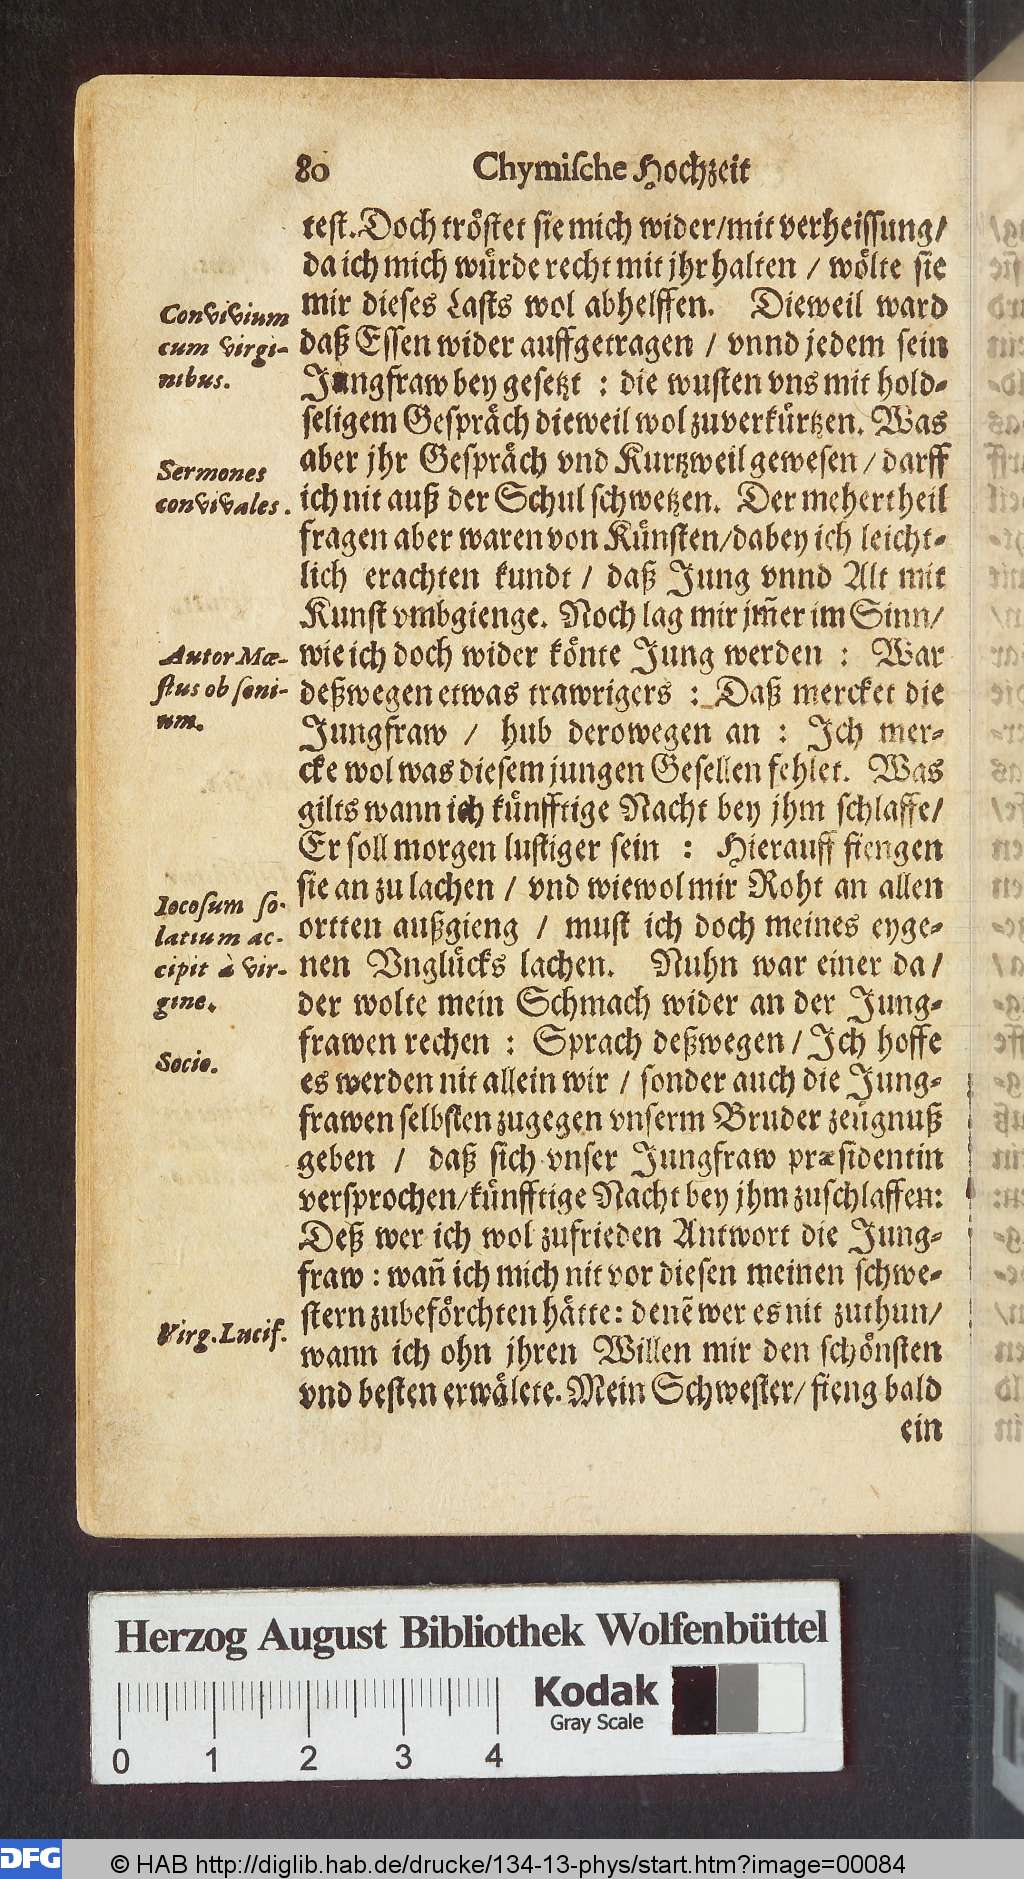 80 Chymische Hochzeit
test. Doch tröstet sie mich wider/mit verheissung/
da ich mich würde recht mit jhr halten / wölte sie
mir dieses Lasts wol abhelffen. Dieweil ward
daß Essen wider auffgetragen / vnnd jedem sein
Jungfraw bey gesetzt : die wusten vns mit hold-
seligem Gespräch dieweil wol zuverkürtzen. Was
aber jhr Gespräch vnd Kurtzweil gewesen / darff
ich nit auß der Schul schwetzen. Der mehertheil
fragen aber waren von Künsten/dabey ich leicht-
lich erachten kundt / daß Jung vnnd Alt mit
Kunst vmbgienge. Noch lag mir jm̃er im Sinn/
wie ich doch wider könte Jung werden : War
deßwegen etwas trawrigers : Daß mercket die
Jungfraw / hub derowegen an : Jch mer-
cke wol was diesem jungen Gesellen fehlet. Was
gilts wann ich künfftige Nacht bey jhm schlaffe/
Er soll morgen lustiger sein : Hierauff fiengen
sie an zu lachen / vnd wiewol mir Roht an allen
ortten außgieng / must ich doch meines eyge-
nen Vnglücks lachen. Nuhn war einer da/
der wolte mein Schmach wider an der Jung-
frawen rechen : Sprach deßwegen / Jch hoffe
es werden nit allein wir / sonder auch die Jung-
frawen selbsten zugegen vnserm Bruder zeügnuß
geben / daß sich vnser Jungfraw præsidentin
versprochen/künfftige Nacht bey jhm zuschlaffen:
Deß wer ich wol zufrieden Antwort die Jung-
fraw : wañ ich mich nit vor diesen meinen schwe-
stern zubeförchten hätte: denẽ wer es nit zuthun/
wann ich ohn jhren Willen mir den schönsten
vnd besten erwälete. Mein Schwester/ fieng bald
ein
Convivium
cum virgi-
nibus.
Sermones
convivales.
Autor Mœ-
stus ob seni-
um.
Iocosum so-
latium ac-
cipit à vir-
gine.
Socio.
Virg. Lucif.
Herzog August Bibliothek Wolfenbüttel
0 1 2 3 4
Kodak
Gray Scale
DFG
© HAB http://diglib.hab.de/drucke/134-13-phys/start.htm?image=00084